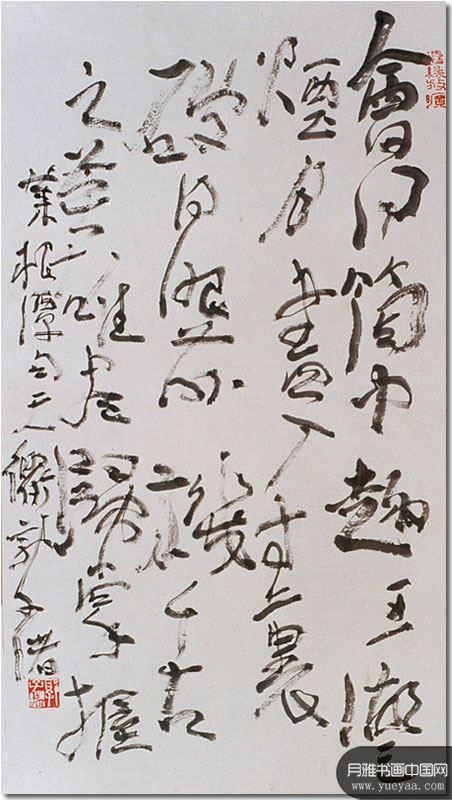 會得箇中趣五湖之
煙月盡入寸裏
破得眼前機千古
之英雄盡歸掌握
菜根潭句
月雅书画中国网
www.yueyaa.com